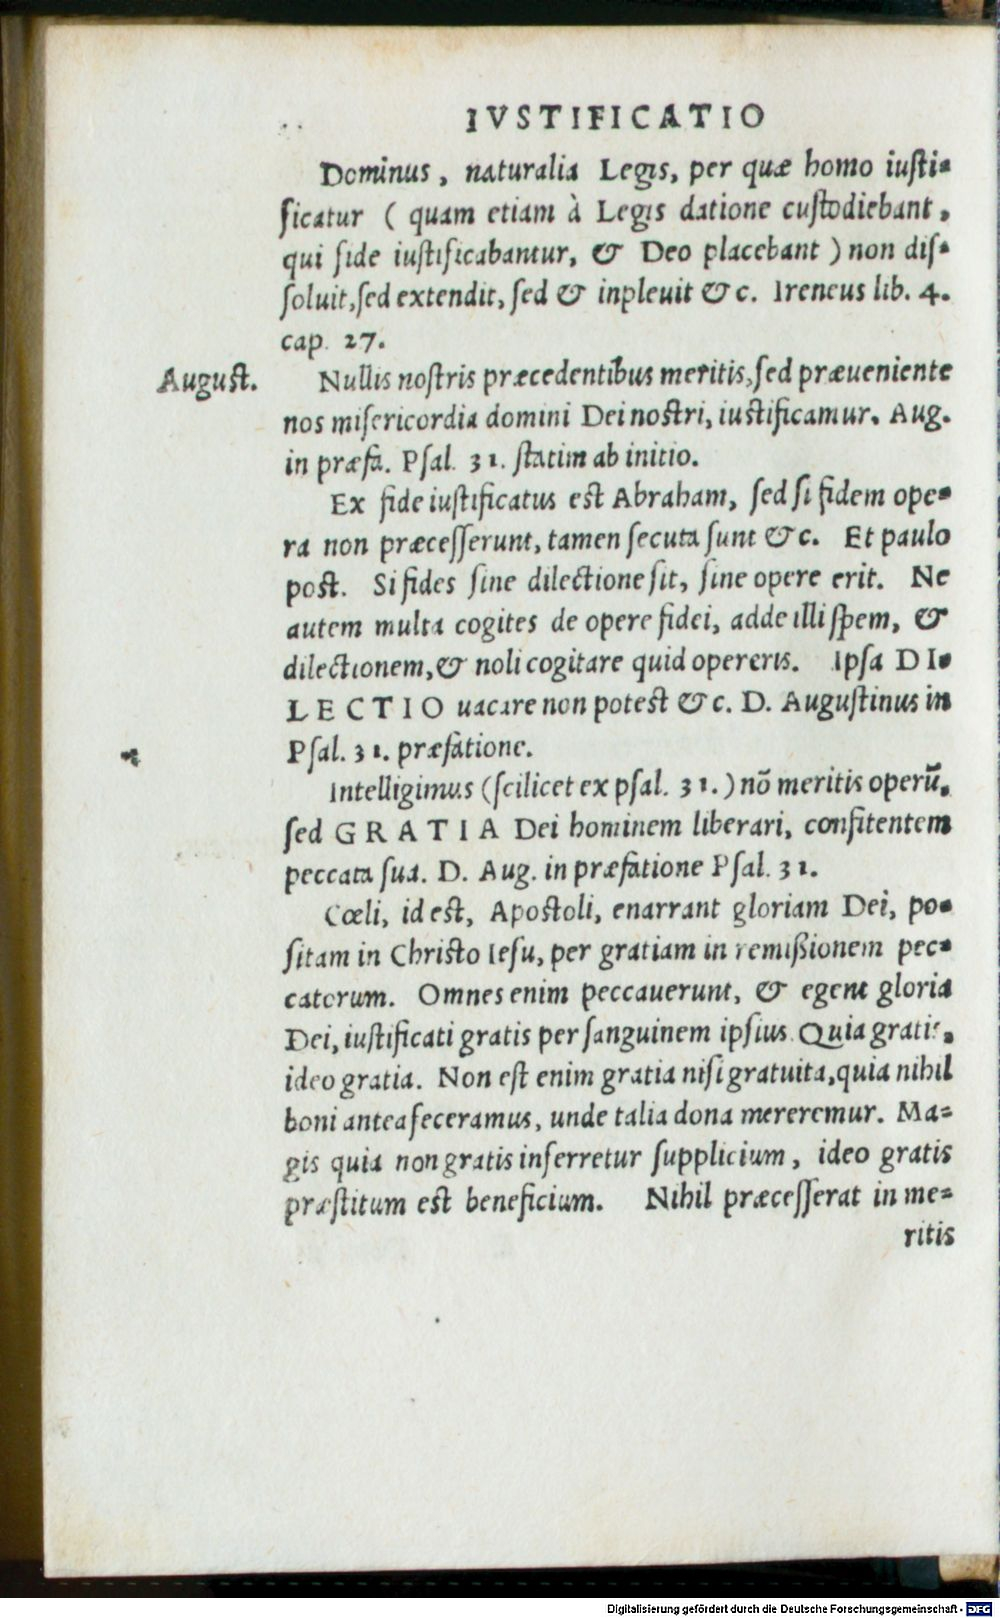 IVSTIFICATIO
Dominus, naturalia Legis, per quæ homo iusti-
ficatur ( quam etiam à Legis datione custodiebant,
qui fide iustificabantur, & Deo placebant ) non dis-
soluit, sed extendit, sed & inpleuit &c. Ireneus lib. 4.
cap. 27.
August.
Nullis nostris præcedentibus meritis, sed præueniente
nos misericordia domini Dei nostri, iustificamur. Aug.
in præfa. Psal. 31. statim ab initio.
Ex fide iustificatus est Abraham, sed si fidem ope-
ra non præcesserunt, tamen secuta sunt &c. Et paulo
post. Si fides sine dilectione sit, sine opere erit. Ne
autem multa cogites de opere fidei, adde illi spem, &
dilectionem, & noli cogitare quid opereris. Ipsa DI-
LECTIO uacare non potest &c. D. Augustinus in
Psal. 31. præfatione.
Intelligimus (scilicet ex psal. 31.) nõ meritis operũ,
sed GRATIA Dei hominem liberari, confitentem
peccata sua. D. Aug. in præfatione Psal. 31.
Cœli, id est, Apostoli, enarrant gloriam Dei, po-
sitam in Christo Iesu, per gratiam in remißionem pec-
catorum. Omnes enim peccauerunt, & egent gloria
Dei, iustificati gratis per sanguinem ipsius. Quia gratis,
ideo gratia. Non est enim gratia nisi gratuita, quia nihil
boni antea feceramus, unde talia dona mereremur. Ma-
gis quia non gratis inferretur supplicium, ideo gratis
præstitum est beneficium. Nihil præcesserat in me-
ritis
Digitalisierung gefördert durch die Deutsche Forschungsgemeinschaft - DFG